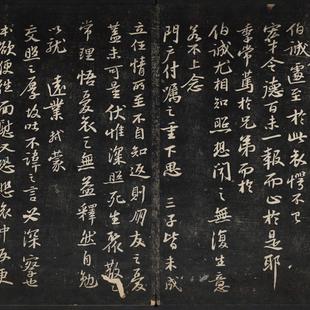 伯誠遽至於此哀愕不已
宏才令德百未一報而止於是耶
季常篤於兄弟而於
伯誠尤相知照想聞之無復生意
若不上念
門戶付囑之重下思三子皆未成
立任情所至不自知返則朋友之憂
蓋未可量伏惟深照死生聚散
常理悟憂哀之無益釋然自勉
以就遠業軾蒙
交照之厚故吐不諱之言必深察也
本欲便往面慰又恐悲哀中反更